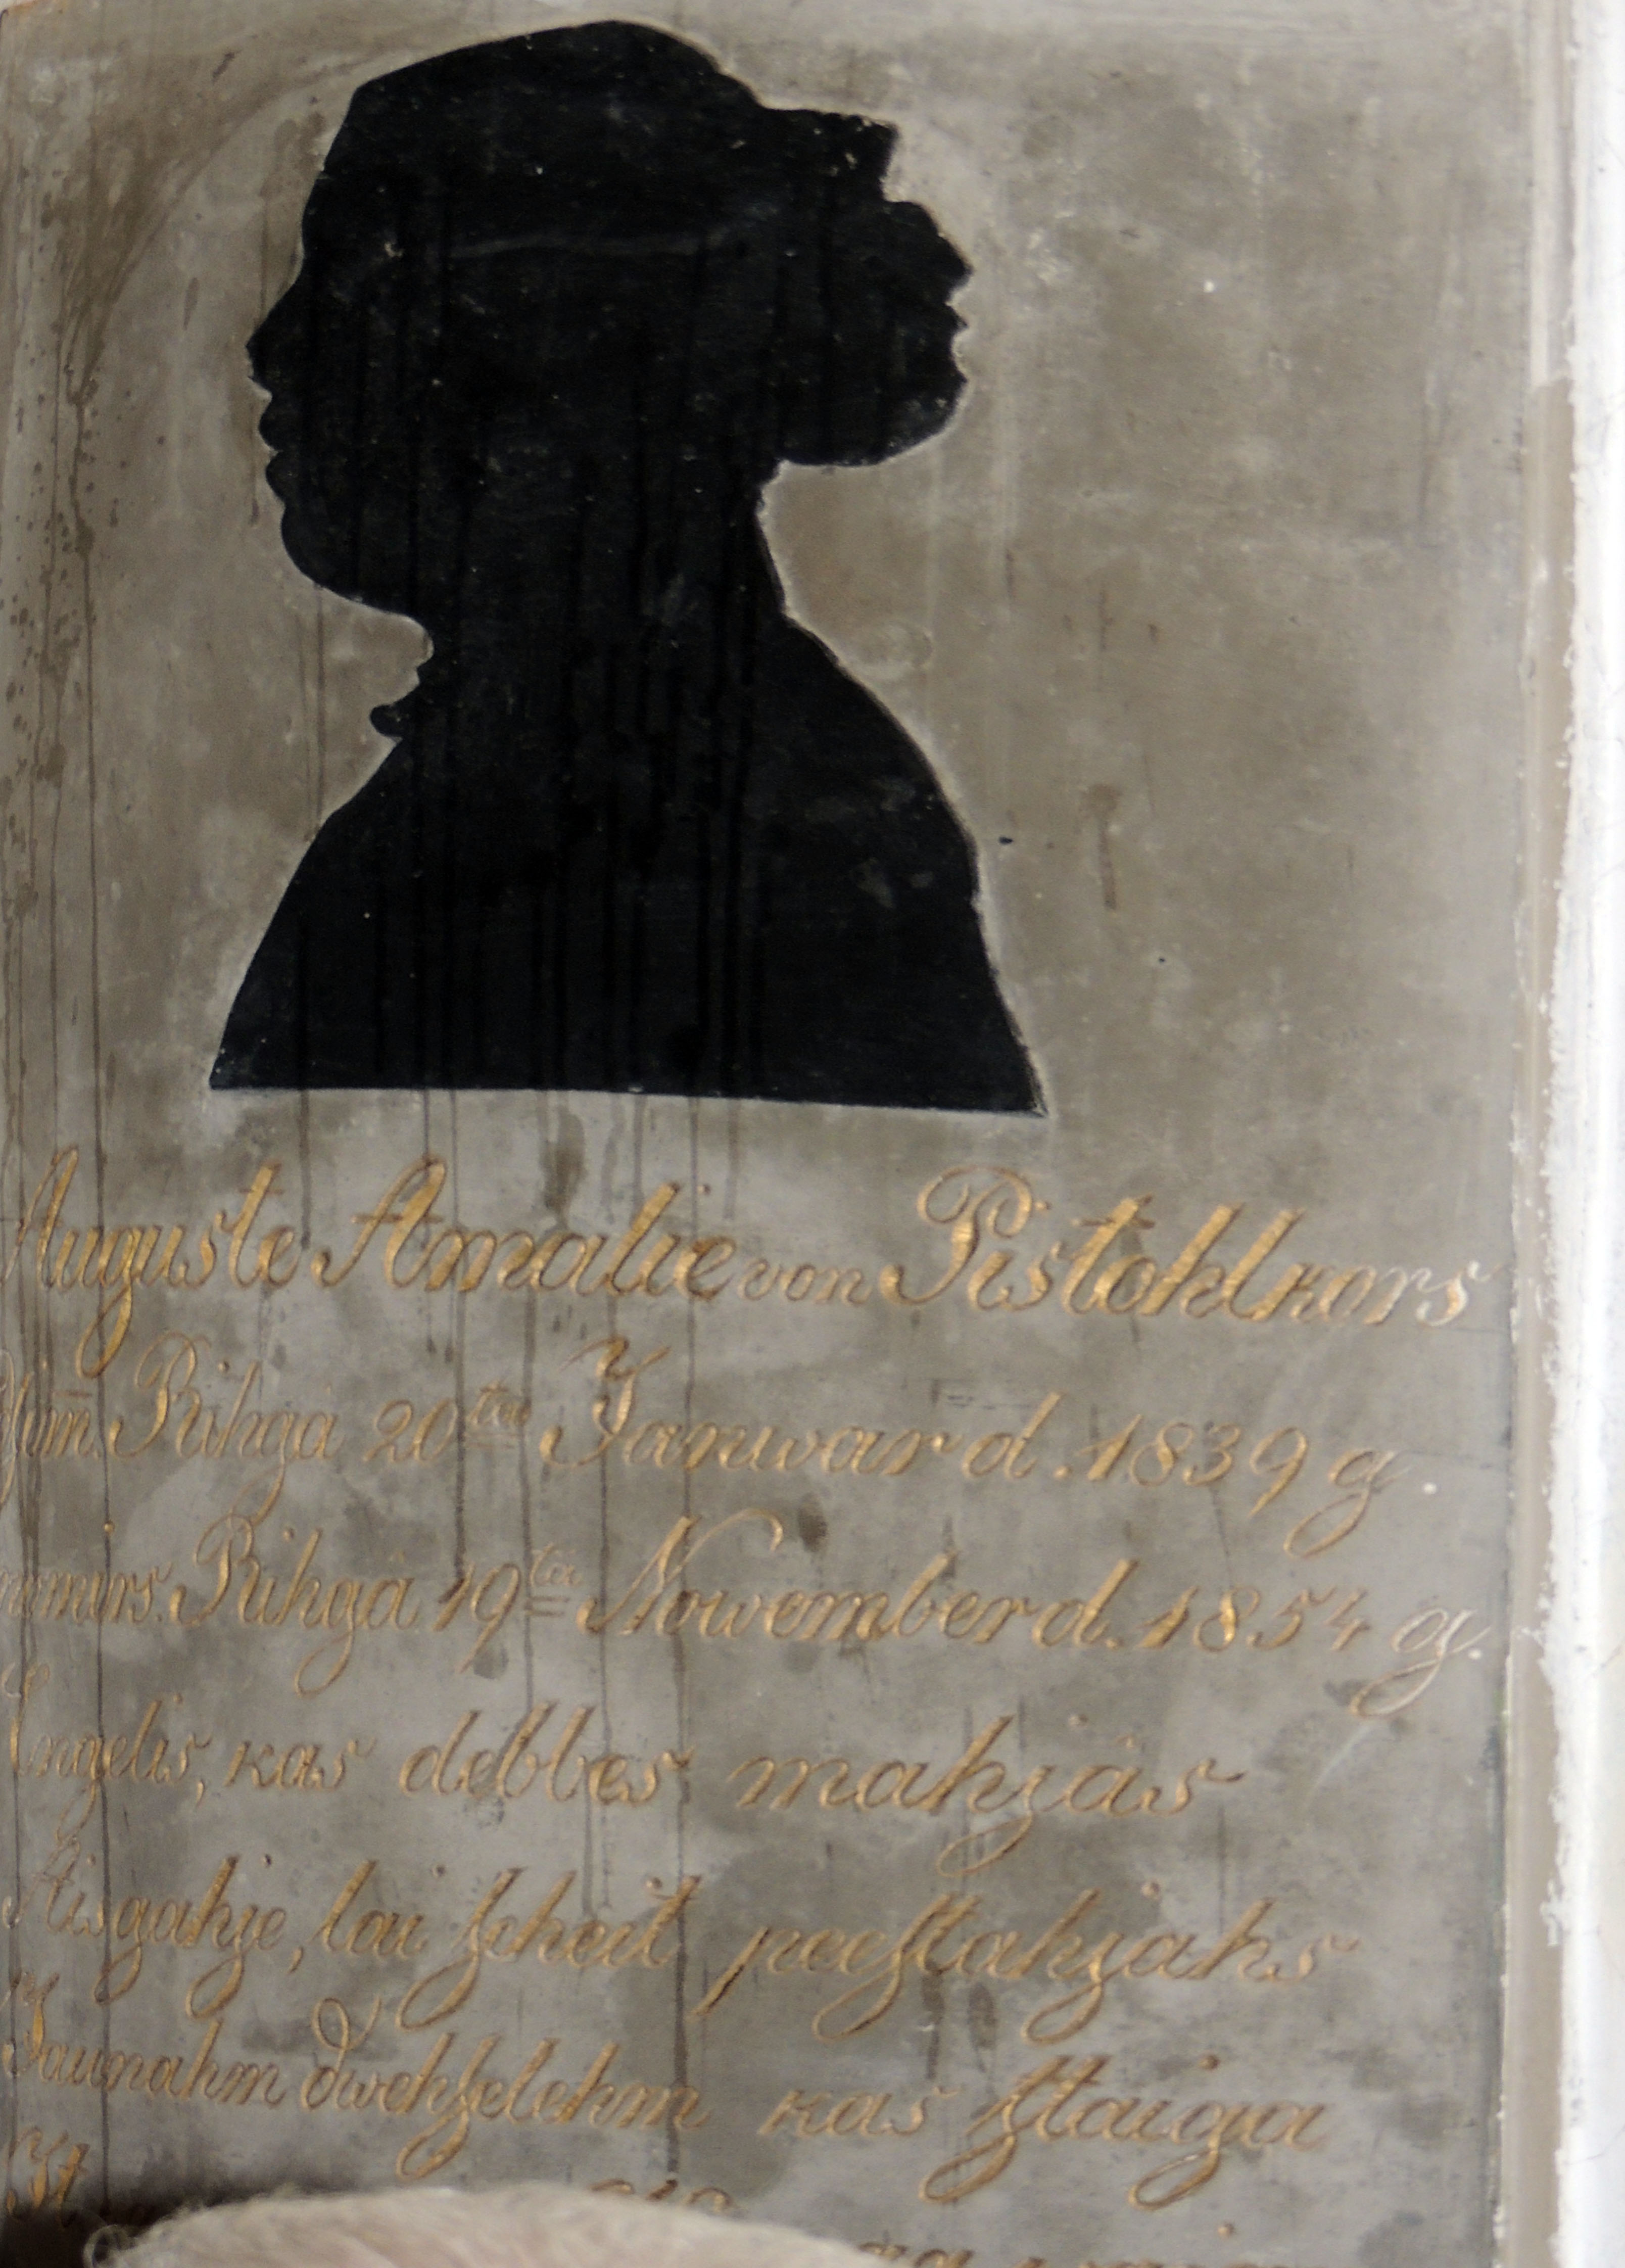 Auguste Amalie von Pistohlkors
Dsim. Rihgâ 20ta Januar d. 1839 g.
nomirs. Rihgâ 19ta Nowember d. 1854 g.
Engelis, kas debbes mahjâs
Aisgahje, lai scheit peeſtahjahs
Jaunahm dwehſelehm kas ſtaiga